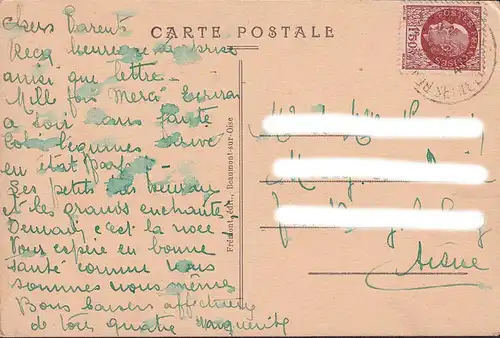 CARTE POSTALE
Chers Parents
Reçu heureuse surprise
ainsi que lettre.
Mille fois Merci Ecrirai
à soir sans faute
Colis légumes arrivé
en état parfait.
Les petits
et les grands enchantés
Demain c'est la noce.
Vous espère en bonne
santé comme nous
sommes nous mêmes
Bons baisers affectueux
de tous quatre Marguerite
Frémont, édit., Beaumont-sur-Oise
Aisne
POSTES
1F50